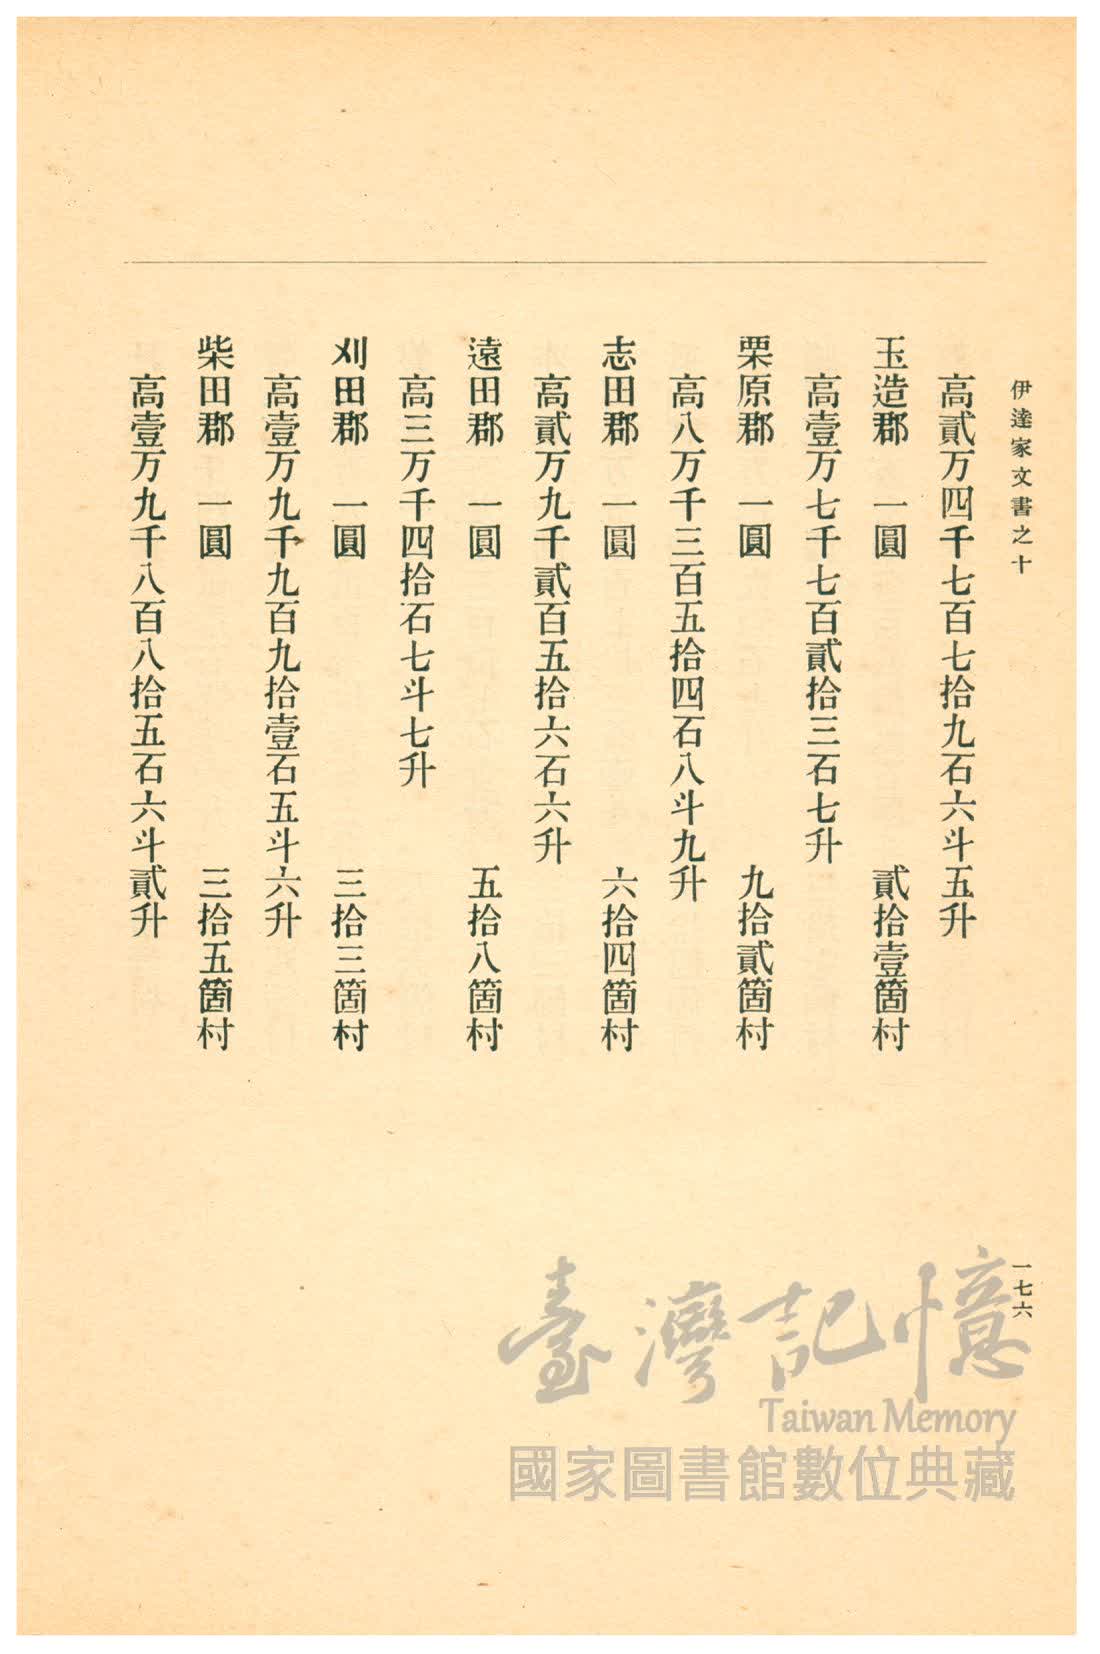 伊達家文書之十
一七六
高貳万四千七百七拾九石六斗五升
玉造郡　一圓　貳拾壹箇村
高壹万七千七百貳拾三石七升
栗原郡　一圓　九拾貳箇村
高八万千三百五拾四石八斗九升
志田郡　一圓　六拾四箇村
高貳万九千貳百五拾六石六升
遠田郡　一圓　五拾八箇村
高三万千四拾石七斗七升
刈田郡　一圓　三拾三箇村
高壹万九千九百九拾壹石五斗六升
柴田郡　一圓　三拾五箇村
高壹万九千八百八拾五石六斗貳升
臺灣記憶
Taiwan Memory
國家圖書館數位典藏